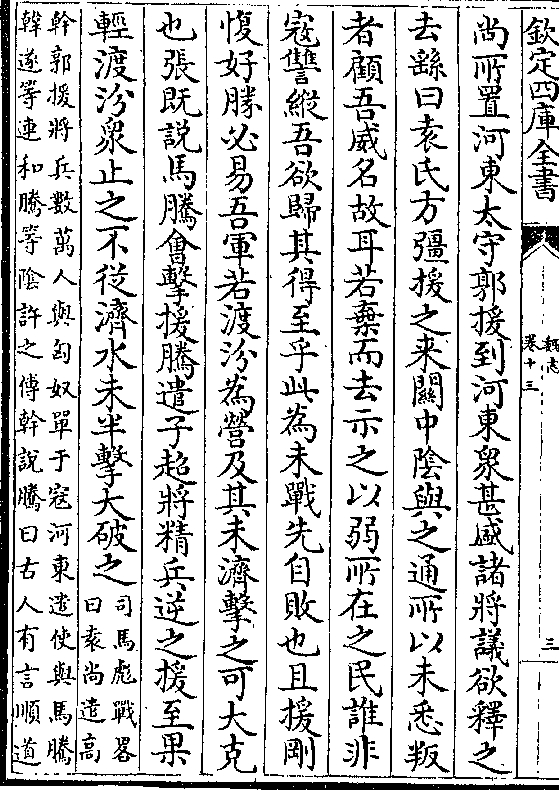 欽定四庫全書
魏志
卷十三
三
尚所置河東太守郭援到河東衆甚盛諸將議欲釋之
去繇曰袁氏方彊援之来關中陰與之通所以未悉叛
者顧吾威名故耳若棄而去示之以弱所在之民誰非
寇讐縱吾欲歸其得至乎此為未戰先自敗也且援剛
愎好勝必易吾軍若渡汾為營及其未濟擊之可大克
也張既説馬騰會擊援騰遣子超將精兵逆之援至果
輕渡汾衆止之不從濟水未半擊大破之
司馬彪戰畧
曰袁尚遣高
幹郭援將兵數萬人與匈奴單于寇河東遣使與馬騰
韓遂等連和騰等陰許之傅幹説騰曰古人有言順道